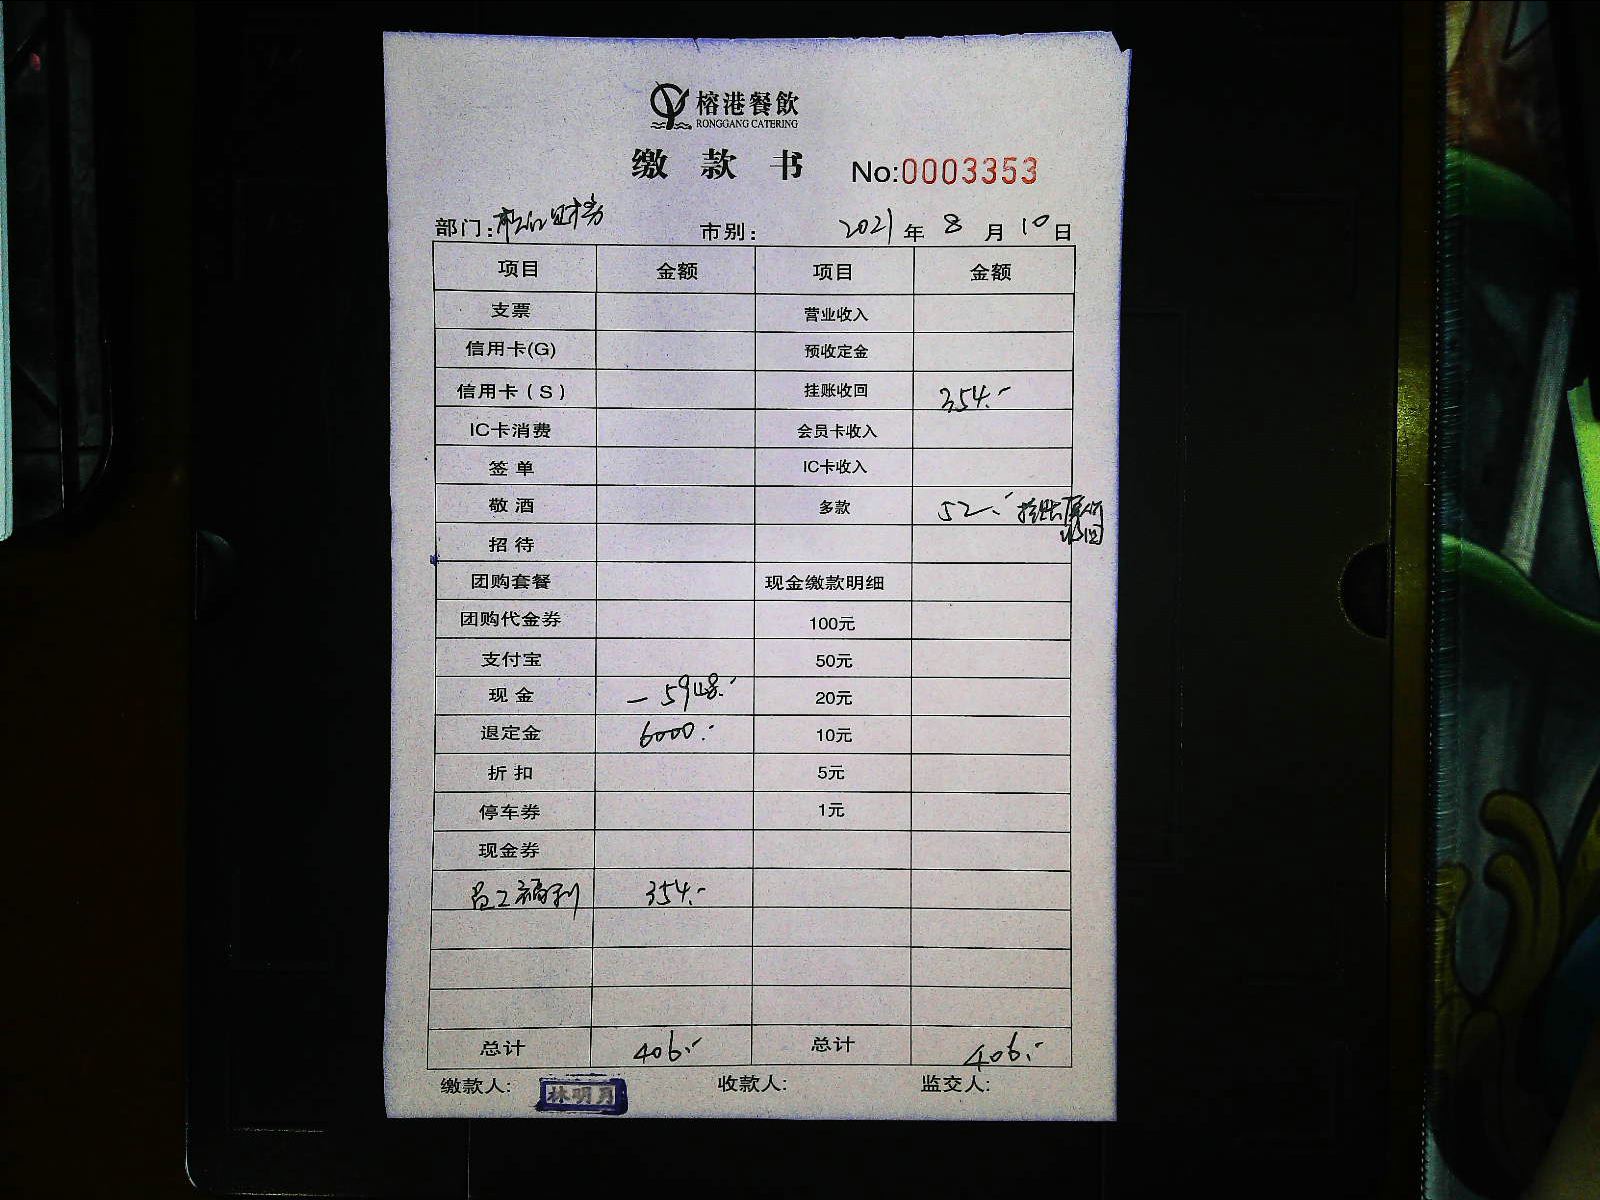 榕港餐飲
RONGGANG CATERING
缴款书 No:0003353
部门: 财务 市别: 2021年8月10日
项目 金额 项目 金额
支票 营业收入
信用卡(G) 预收定金
信用卡(S) 挂账收回 354.-
IC卡消费 会员卡收入
签单 IC卡收入
敬酒 多款 52.- 挂账
收回
招待
团购套餐 现金缴款明细
团购代金券 100元
支付宝 50元
现金 -5948.- 20元
退定金 6000.- 10元
折扣 5元
停车券 1元
现金券
员工福利 354.-
总计 406.- 总计 406.-
缴款人: 林明月 收款人: 监交人: